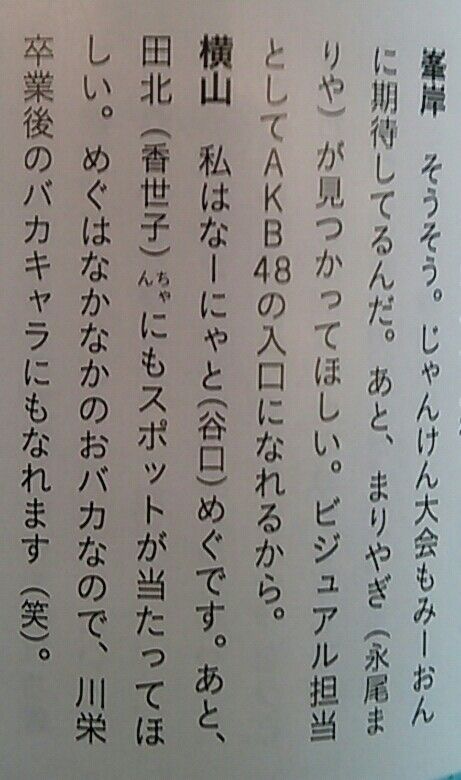 峯岸　そうそう。じゃんけん大会もみーおん
に期待してるんだ。あと、まりやぎ（永尾ま
りや）が見つかってほしい。ビジュアル担当
としてAKB48の入口になれるから。
横山　私はなーにゃと（谷口）めぐです。あと、
田北（香世子）ちゃんにもスポットが当たってほ
しい。めぐはなかなかのおバカなので、川栄
卒業後のバカキャラにもなれます（笑）。